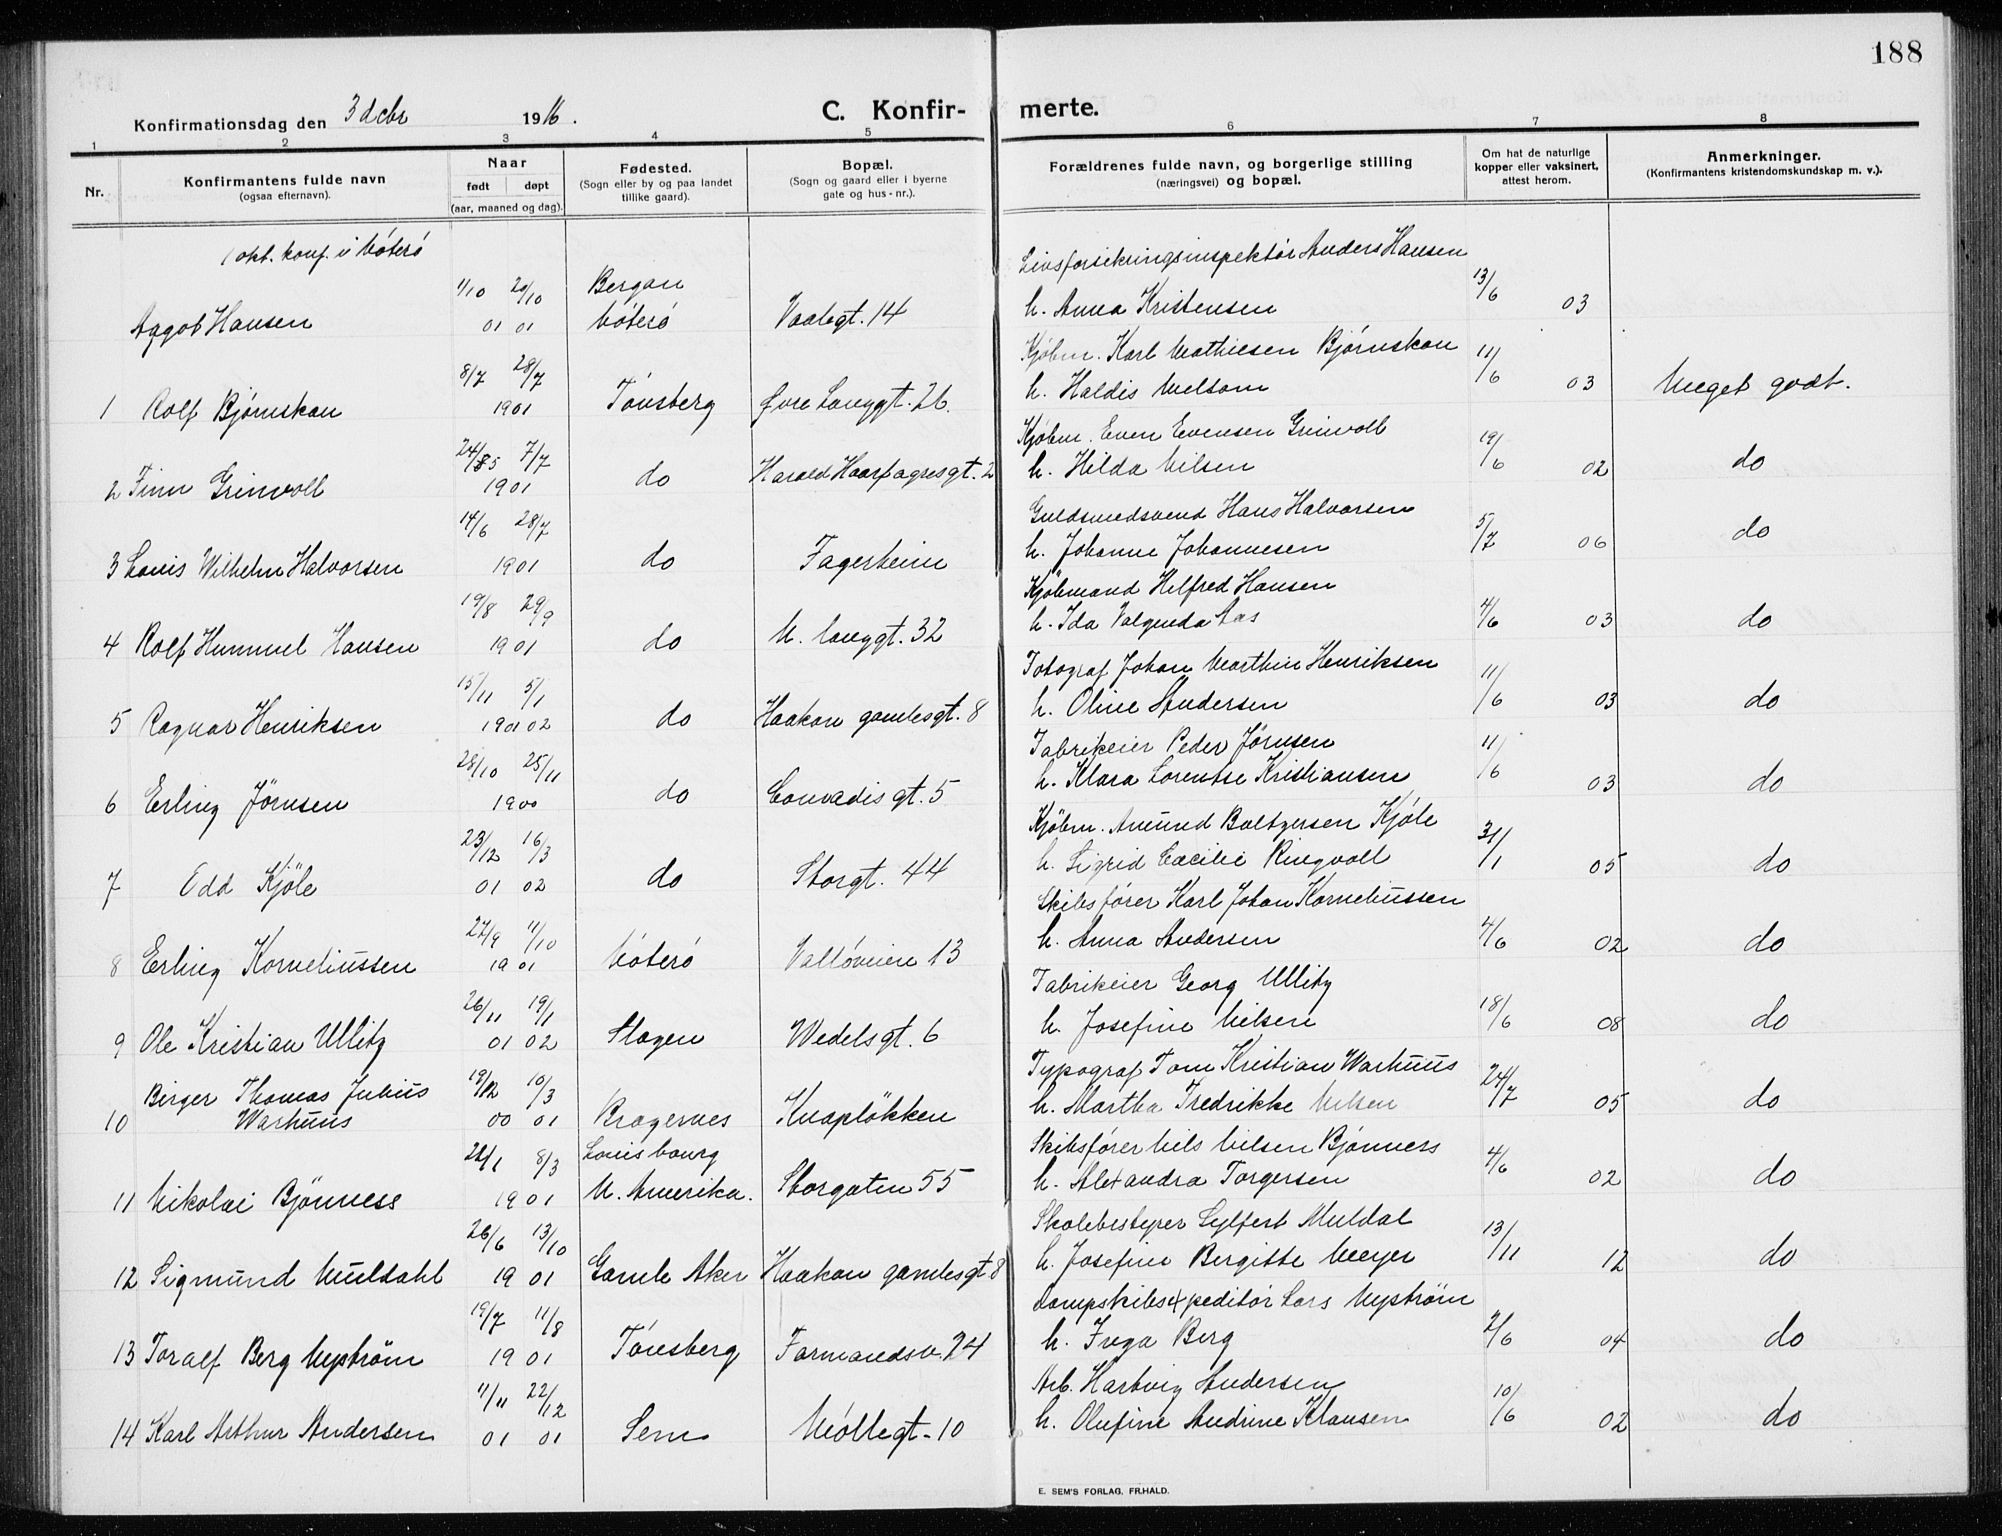 188
Konfirmationsdag den 3 dcbr 1916.
C. Konfirmerte.
1 2 3 4 5 6 7 8
Nr.
Konfirmantens fulde navn
(ogsaa efternavn).
Naar
født døpt
(aar, maaned og dag).
Fødested.
(Sogn eller by og paa landet
tillike gaard).
Bopæl.
(Sogn og gaard eller i byerne
gate og hus-nr.).
Forældrenes fulde navn, og borgerlige stilling
(næringsvei) og bopæl.
Om hat de naturlige
kopper eller vaksinert,
attest herom.
Anmerkninger.
(Konfirmantens kristendomskundskap m. v.).
1 okt. konf. i Nøterø
Livsforsikringsinspektör Anders Hansen
1/10 20/10 Bergan 13/6
Aagot Hansen 01 01 Nøterø Vaalegt. 14 h. Anna Kristensen 03
Kjöbm. Karl Mathiesen Bjørnskau
8/7 28/7 11/6
1 Rolf Bjørnskau 1901 Tønsberg Øvre Langgt. 26. h. Haldis Melsom 03 Meget godt.
Kjöbm. Even Evensen Grinvoll
24/5 7/7 19/6
2 Finn Grinvoll 1901 do Harald Haarfagresgt. 2 h. Hilda Nilsen 02 do
Guldsmedsvend Hans Halvorsen
14/6 28/7 5/7
3 Louis Wilhelm Halvorsen 1901 do Fagerheim h. Johanne Johannesen 06 do
Kjöbmand Hilfred Hansen
19/8 29/9 4/6
4 Rolf Hummel Hansen 1901 do N. Langgt. 32 h. Ida Valgerda Aas 03 do
Fotograf Johan Marthin Henriksen
15/11 5/1 11/6
5 Ragnar Henriksen 1901 02 do Haakon gamlesgt. 8 h. Oline Andersen 03 do
Fabrikeier Peder Jørnsen
28/10 25/11 11/6
6 Erling Jørnsen 1900 do Conradisgt. 5 h. Klara Lorentse Kristiansen 03 do
Kjöbm. Amund Baltzersen Kjöle
23/12 16/3 31/1
7 Odd Kjöle 01 02 do Storgt. 44 h. Sigrid Cæcilie Ringvoll 05 do
Skibsfører Karl Johan Korneliussen
27/9 11/10 4/6
8 Erling Korneliussen 1901 Nøterø Valløveien 13 h. Anna Andersen 02 do
Fabrikeier Georg Ullitz
26/11 19/1 18/6
9 Ole Kristian Ullitz 01 02 Slagen Wedelsgt. 6 h. Josefine Nilsen 08 do
Typograf Tom Kristian Warhuus
Birger Thomas Julius 19/12 10/3 24/7
10 Warhuus 00 01 Bragernes Knapløkken h. Martha Fredrikke Nilsen 05 do
Skibsfører Nils Nilsen Bjønnes
22/1 8/3 Louisbourg 4/6
11 Nikolai Bjønness 1901 N. Amerika. Storgaten 55 h. Alexandra Torgersen 02 do
Skolebestyrer Sylfert Muldal
26/6 13/10 13/11
12 Sigmund Muldahl 1901 Gamle Aker Haakon gamlesgt 8 h. Josefine Bergitte Meyer 12 do
Dampskibsexpeditör Lars Nyström
19/7 11/8 2/6
13 Toralf Berg Nyström 1901 Tønsberg Formandsv. 24 h. Inga Berg 04 do
Arb. Hartvig Andersen
11/11 22/12 10/6
14 Karl Arthur Andersen 01 01 Sem Møllegt. 10 h. Olufine Andrine Klausen 02 do
E. SEM'S FORLAG, FR.HALD.